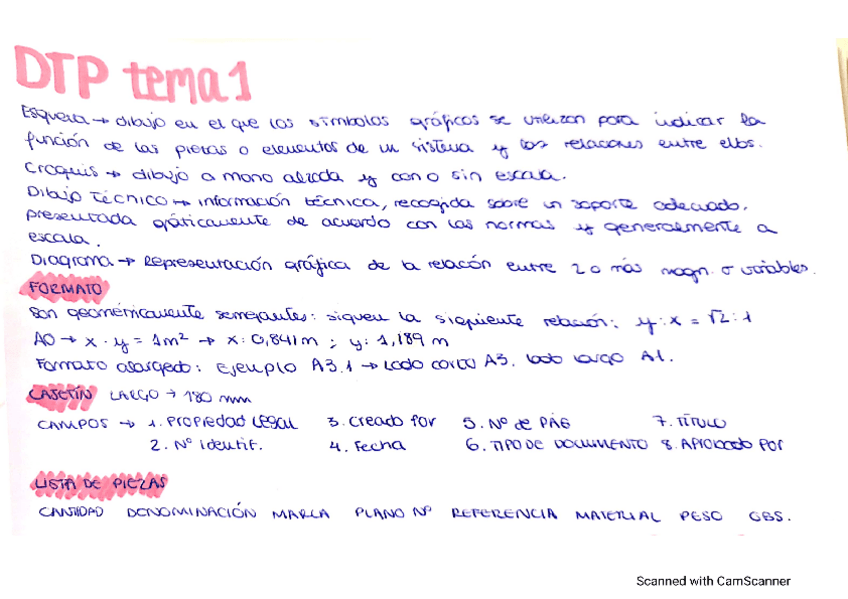 DTP tema 1
Esquema → dibujo en el que los símbolos gráficos se utilizan para indicar la
función de las piezas o elementos de un sistema y las relaciones entre ellos.
Croquis → dibujo a mano alzada y con o sin escala.
Dibujo Técnico → información técnica, recogida sobre un soporte adecuado,
presentada gráficamente de acuerdo con las normas y generalmente a
escala.
Diagrama → Representación gráfica de la relacón entre 2 o más magn. o variables.
FORMATO
Son geométricamente semejantes: siguen la siguiente relación: y:x = √2:1
A0 → x · y = 1m² → x: 0,841m ; y: 1,189 m
Formato alargado: Ejemplo A3.1 → Lado corto A3. lado largo A1.
CAJETÍN LARGO → 180 mm
CAMPOS → 1. Propiedad Legal 3. Creado por 5. Nº de PÁG 7. TÍTULO
2. Nº identif. 4. Fecha 6. TIPO DE DOCUMENTO 8. APROBADO POR
LISTA DE PIEZAS
CANTIDAD DENOMINACIÓN MARCA PLANO Nº REFERENCIA MATERIAL PESO OBS.
Scanned with CamScanner